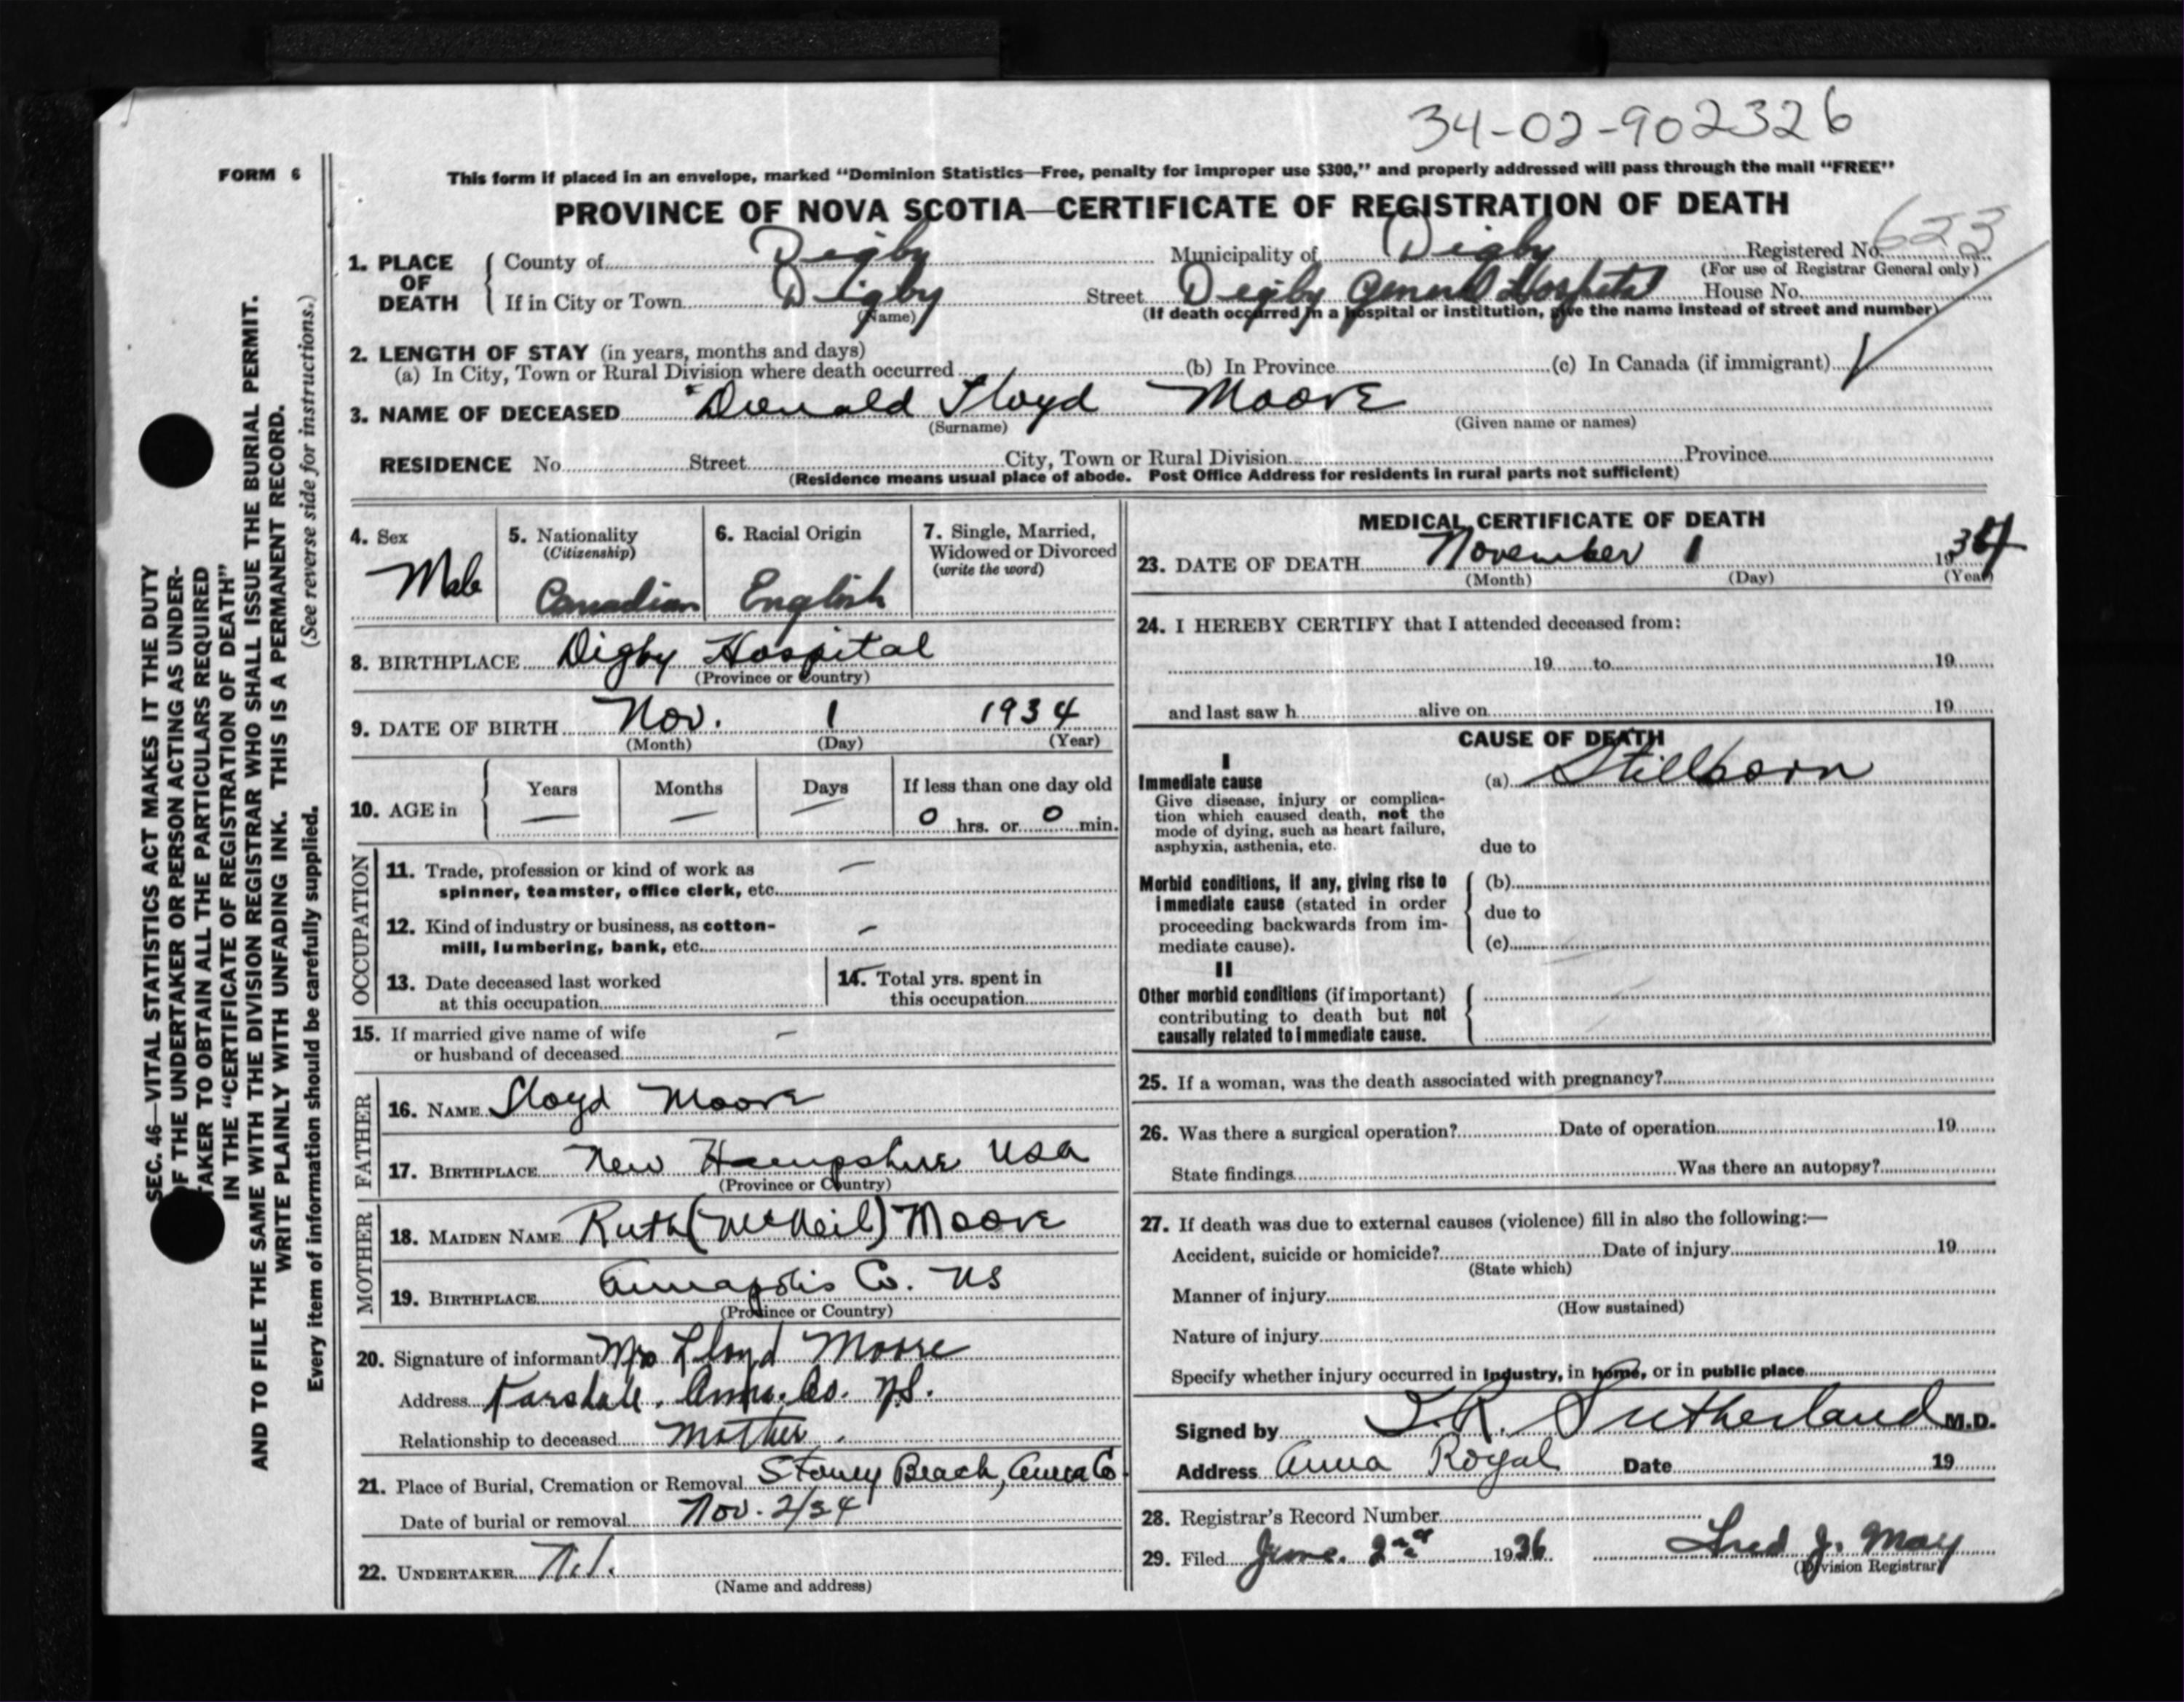 34-02-902326
FORM 6
This form if placed in an envelope, marked "Dominion Statistics—Free, penalty for improper use $300," and properly addressed will pass through the mail "FREE"
PROVINCE OF NOVA SCOTIA—CERTIFICATE OF REGISTRATION OF DEATH
1. PLACE OF DEATH
County of Digby Municipality of Digby Registered No. 623
(For use of Registrar General only)
If in City or Town Digby Street Digby General Hospital House No.
(Name) (If death occurred in a hospital or institution, give the name instead of street and number)
2. LENGTH OF STAY (in years, months and days)
(a) In City, Town or Rural Division where death occurred (b) In Province (c) In Canada (if immigrant)
3. NAME OF DECEASED Donald Lloyd Moore
(Surname) (Given name or names)
RESIDENCE No. Street City, Town or Rural Division Province
(Residence means usual place of abode. Post Office Address for residents in rural parts not sufficient)
4. Sex
Male
5. Nationality
(Citizenship)
Canadian
6. Racial Origin
English
7. Single, Married,
Widowed or Divorced
(write the word)
8. BIRTHPLACE Digby Hospital
(Province or Country)
9. DATE OF BIRTH Nov. 1 1934
(Month) (Day) (Year)
10. AGE in
Years Months Days If less than one day old
— — — 0 hrs. or 0 min.
OCCUPATION
11. Trade, profession or kind of work as —
spinner, teamster, office clerk, etc.
12. Kind of industry or business, as cotton- —
mill, lumbering, bank, etc.
13. Date deceased last worked
at this occupation
14. Total yrs. spent in
this occupation
15. If married give name of wife —
or husband of deceased
FATHER
16. NAME Lloyd Moore
17. BIRTHPLACE New Hampshire USA
(Province or Country)
MOTHER
18. MAIDEN NAME Ruth (McNeil) Moore
19. BIRTHPLACE Annapolis Co. NS
(Province or Country)
20. Signature of informant Mrs Lloyd Moore
Address Karsdale, Anna. Co. N.S.
Relationship to deceased Mother.
21. Place of Burial, Cremation or Removal Stoney Beach, Anna Co.
Date of burial or removal Nov. 2/34
22. UNDERTAKER
(Name and address)
MEDICAL CERTIFICATE OF DEATH
23. DATE OF DEATH November 1 1934
(Month) (Day) (Year)
24. I HEREBY CERTIFY that I attended deceased from:
19 to 19
and last saw h alive on 19
CAUSE OF DEATH
I
Immediate cause (a) Stillborn
Give disease, injury or complica-
tion which caused death, not the
mode of dying, such as heart failure,
asphyxia, asthenia, etc.
due to
Morbid conditions, if any, giving rise to (b)
immediate cause (stated in order due to
proceeding backwards from im-
mediate cause). (c)
II
Other morbid conditions (if important)
contributing to death but not
causally related to immediate cause.
25. If a woman, was the death associated with pregnancy?
26. Was there a surgical operation? Date of operation 19
State findings Was there an autopsy?
27. If death was due to external causes (violence) fill in also the following:—
Accident, suicide or homicide? Date of injury 19
(State which)
Manner of injury
(How sustained)
Nature of injury
Specify whether injury occurred in industry, in home, or in public place
Signed by Sutherland M.D.
Address Anna Royal Date 19
28. Registrar's Record Number
29. Filed June 2nd 1936 Fred J. May
(Division Registrar)
SEC. 46—VITAL STATISTICS ACT MAKES IT THE DUTY
OF THE UNDERTAKER OR PERSON ACTING AS UNDER-
TAKER TO OBTAIN ALL THE PARTICULARS REQUIRED
IN THE "CERTIFICATE OF REGISTRATION OF DEATH"
AND TO FILE THE SAME WITH THE DIVISION REGISTRAR WHO SHALL ISSUE THE BURIAL PERMIT.
WRITE PLAINLY WITH UNFADING INK. THIS IS A PERMANENT RECORD.
Every item of information should be carefully supplied. (See reverse side for instructions.)